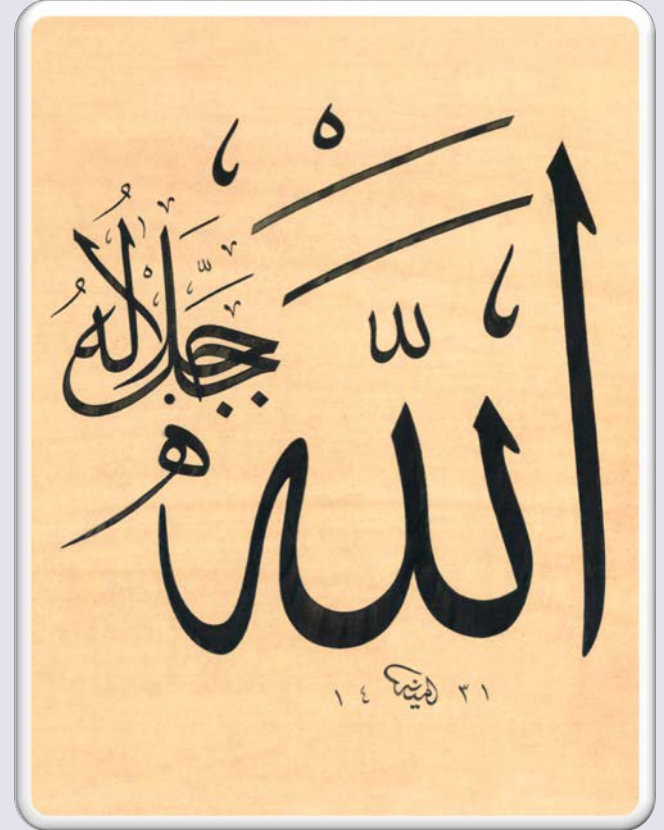 اللّٰه
جَلَّ جَلَالُهُ
١٤ ٣١